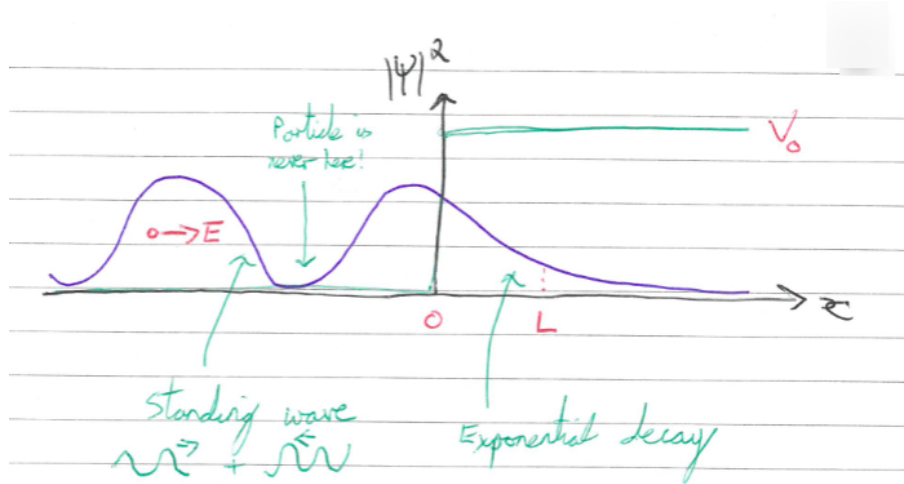 |Ψ|²
Particle is
never here!
V₀
→E
0
L
x
Standing wave
+
Exponential decay